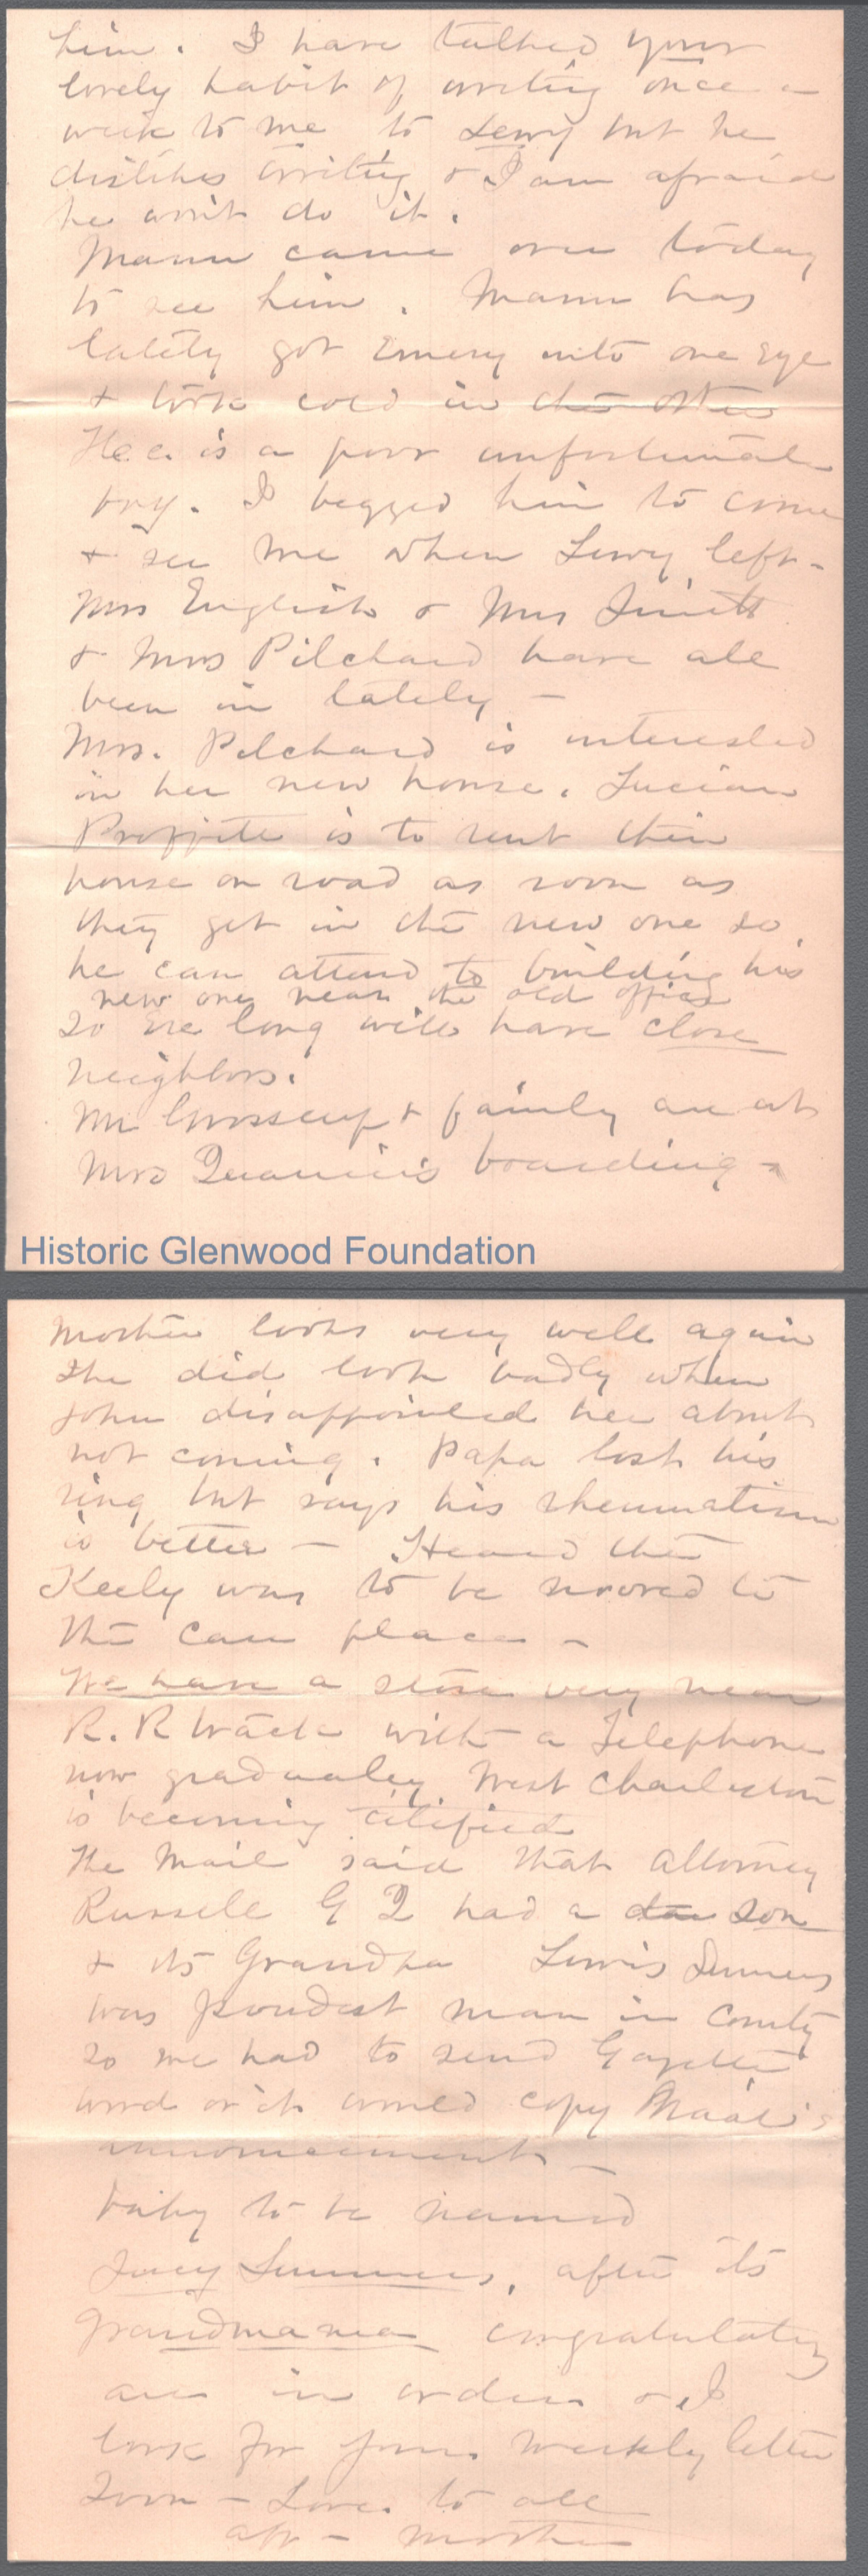 him. I have talked your
lovely habit of writing once a
week to me to Lewy but he
dislikes writing & I am afraid
he won't do it.
Mann came over today
to see him. Mann has
lately got Emery into one eye
& took cold in the other
He is a poor unfortunate
boy. I begged him to come
& see me when Lewy left -
Mrs English & Mrs
& Mrs Pilchard have all
been in lately -
Mrs. Pilchard is interested
in her new house. Lucian
is to rent their
house on road as soon as
they get in the new one so
he can attend to building his
new one near the old office
So ere long will have close
neighbors.
Mr Grosscup & family are at
Mrs boarding -
Historic Glenwood Foundation
Mother looks very well again
She did look badly when
John disappointed her about
not coming. Papa lost his
ring but says his rheumatism
is better - Heard the
Keely was to be moved to
the place -
We have a store very near
R. R track with a Telephone
now gradualey West Charleston
is becoming citified
The Mail said that Attorney
Russell G Q had a dau son
& its Grandpa Lewis Summers
was proudest man in County
so we had to send Gazette
word or it would copy Mail's
announcement -
baby to be named
Lucy Summers, after its
Grandmama congratulations
are in order & I
look for your weekly letter
Soon - Love to all
aff - Mother